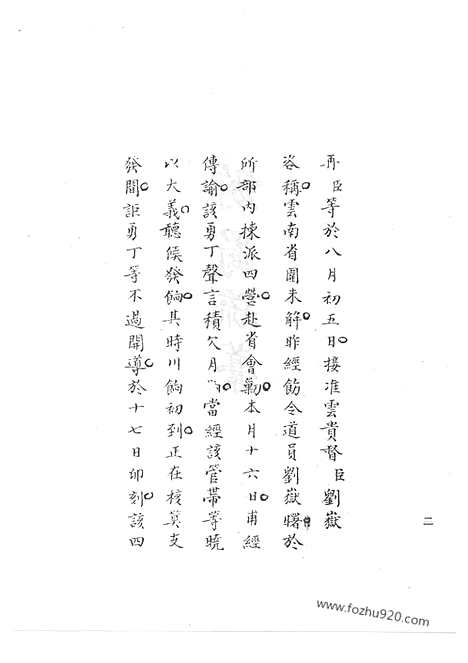 再臣等於八月初五日接准雲貴督臣劉嶽
咨稱雲南省圍未解昨經飭令道員劉嶽曙於
所部內揀派四營赴省會勦本月十六日甫經
傳諭該勇丁聲言積欠月餉當經該管帶等曉
以大義聽候發餉其時川餉初到正在核算支
發間詎勇丁等不遏開導於十七日卯刻該四
二
www.fozhu920.com